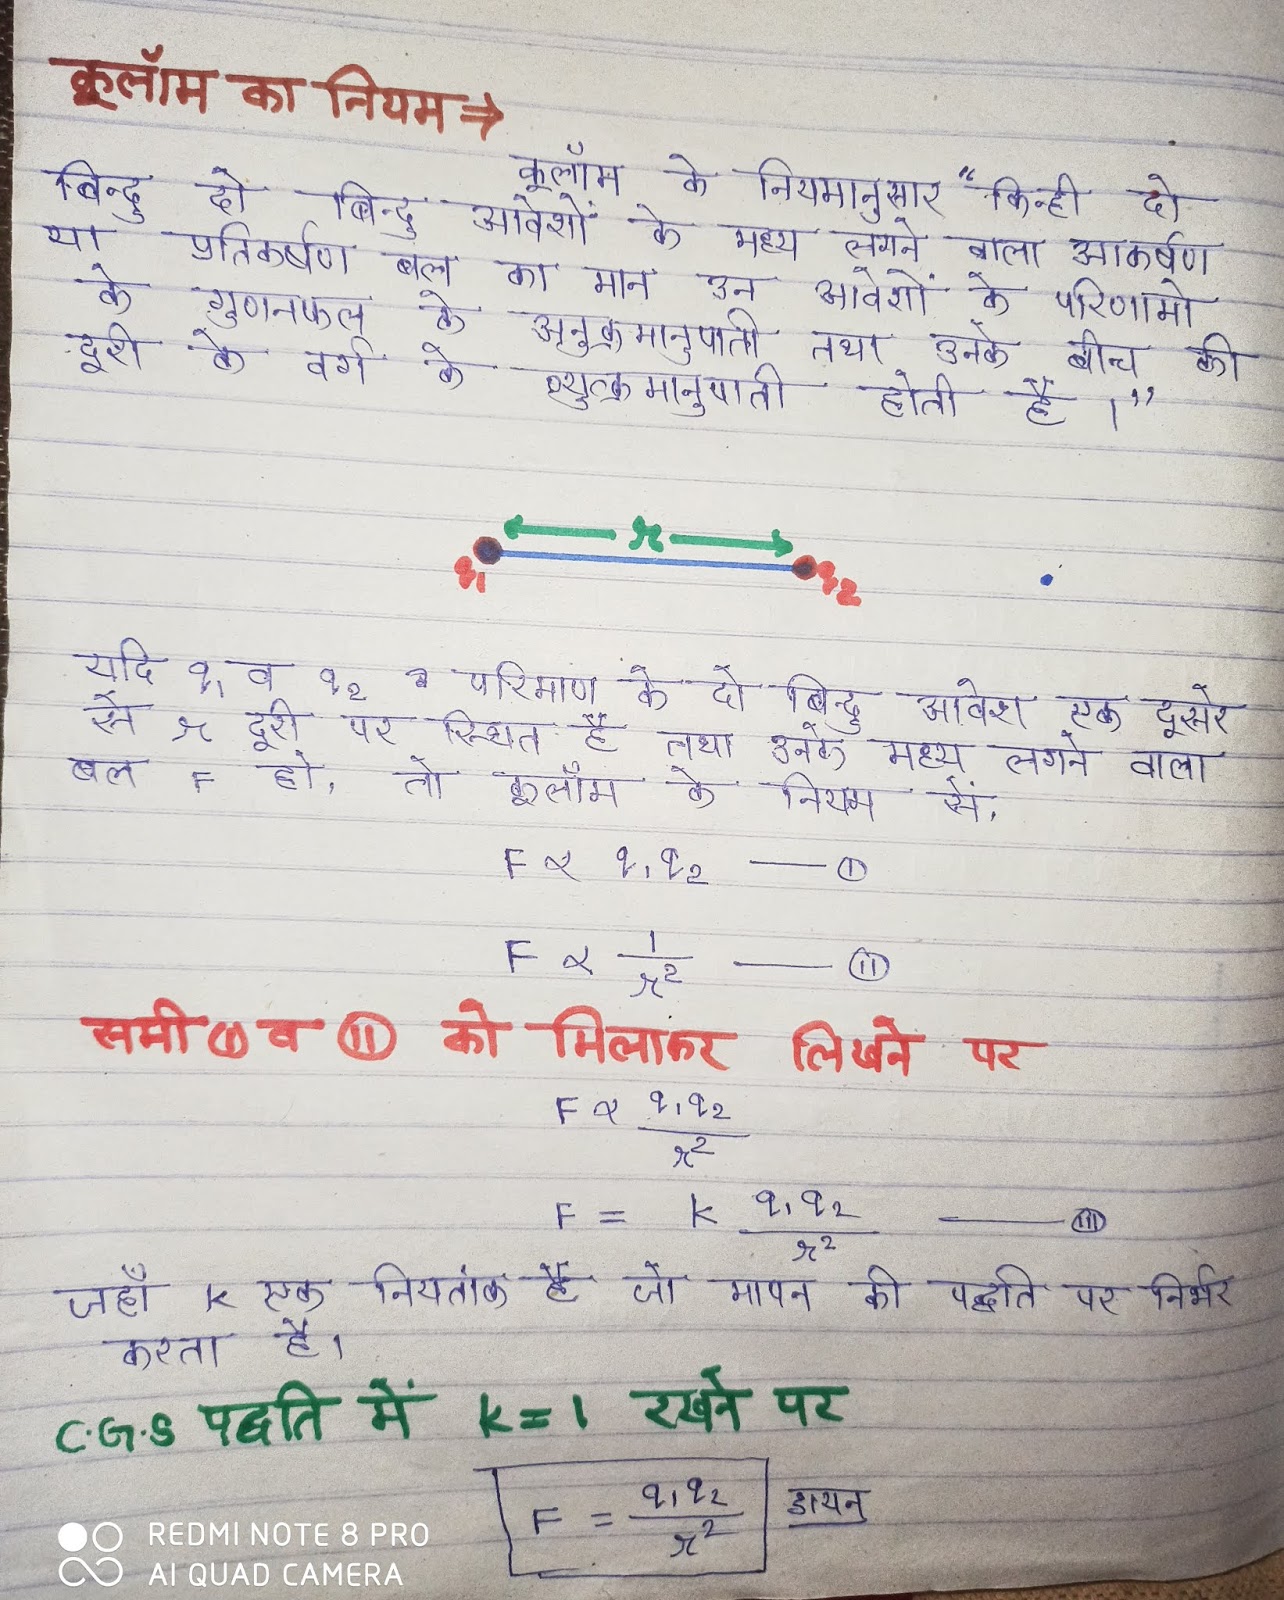 कूलॉम का नियम ⇒
कूलॉम के नियमानुसार "किन्ही दो
बिन्दु दो बिन्दु आवेशों के मध्य लगने वाला आकर्षण
या प्रतिकर्षण बल का मान उन आवेशों के परिणामो
के गुणनफल के अनुक्रमानुपाती तथा उनके बीच की
दूरी के वर्ग के व्युत्क्रमानुपाती होती है ।"
r
q₁ q₂
यदि q₁ व q₂ परिमाण के दो बिन्दु आवेश एक दूसरे
से r दूरी पर स्थित है तथा उनके मध्य लगने वाला
बल F हो, तो कूलॉम के नियम से,
F ∝ q₁q₂ — (I)
F ∝ 1/r² — (II)
समी (I) व (II) को मिलाकर लिखने पर
F ∝ q₁q₂/r²
F = k q₁q₂/r² — (III)
जहाँ k एक नियतांक है जो मापन की पद्धति पर निर्भर
करता है।
C.G.S पद्धति में k=1 रखने पर
F = q₁q₂/r² डायन
REDMI NOTE 8 PRO
AI QUAD CAMERA